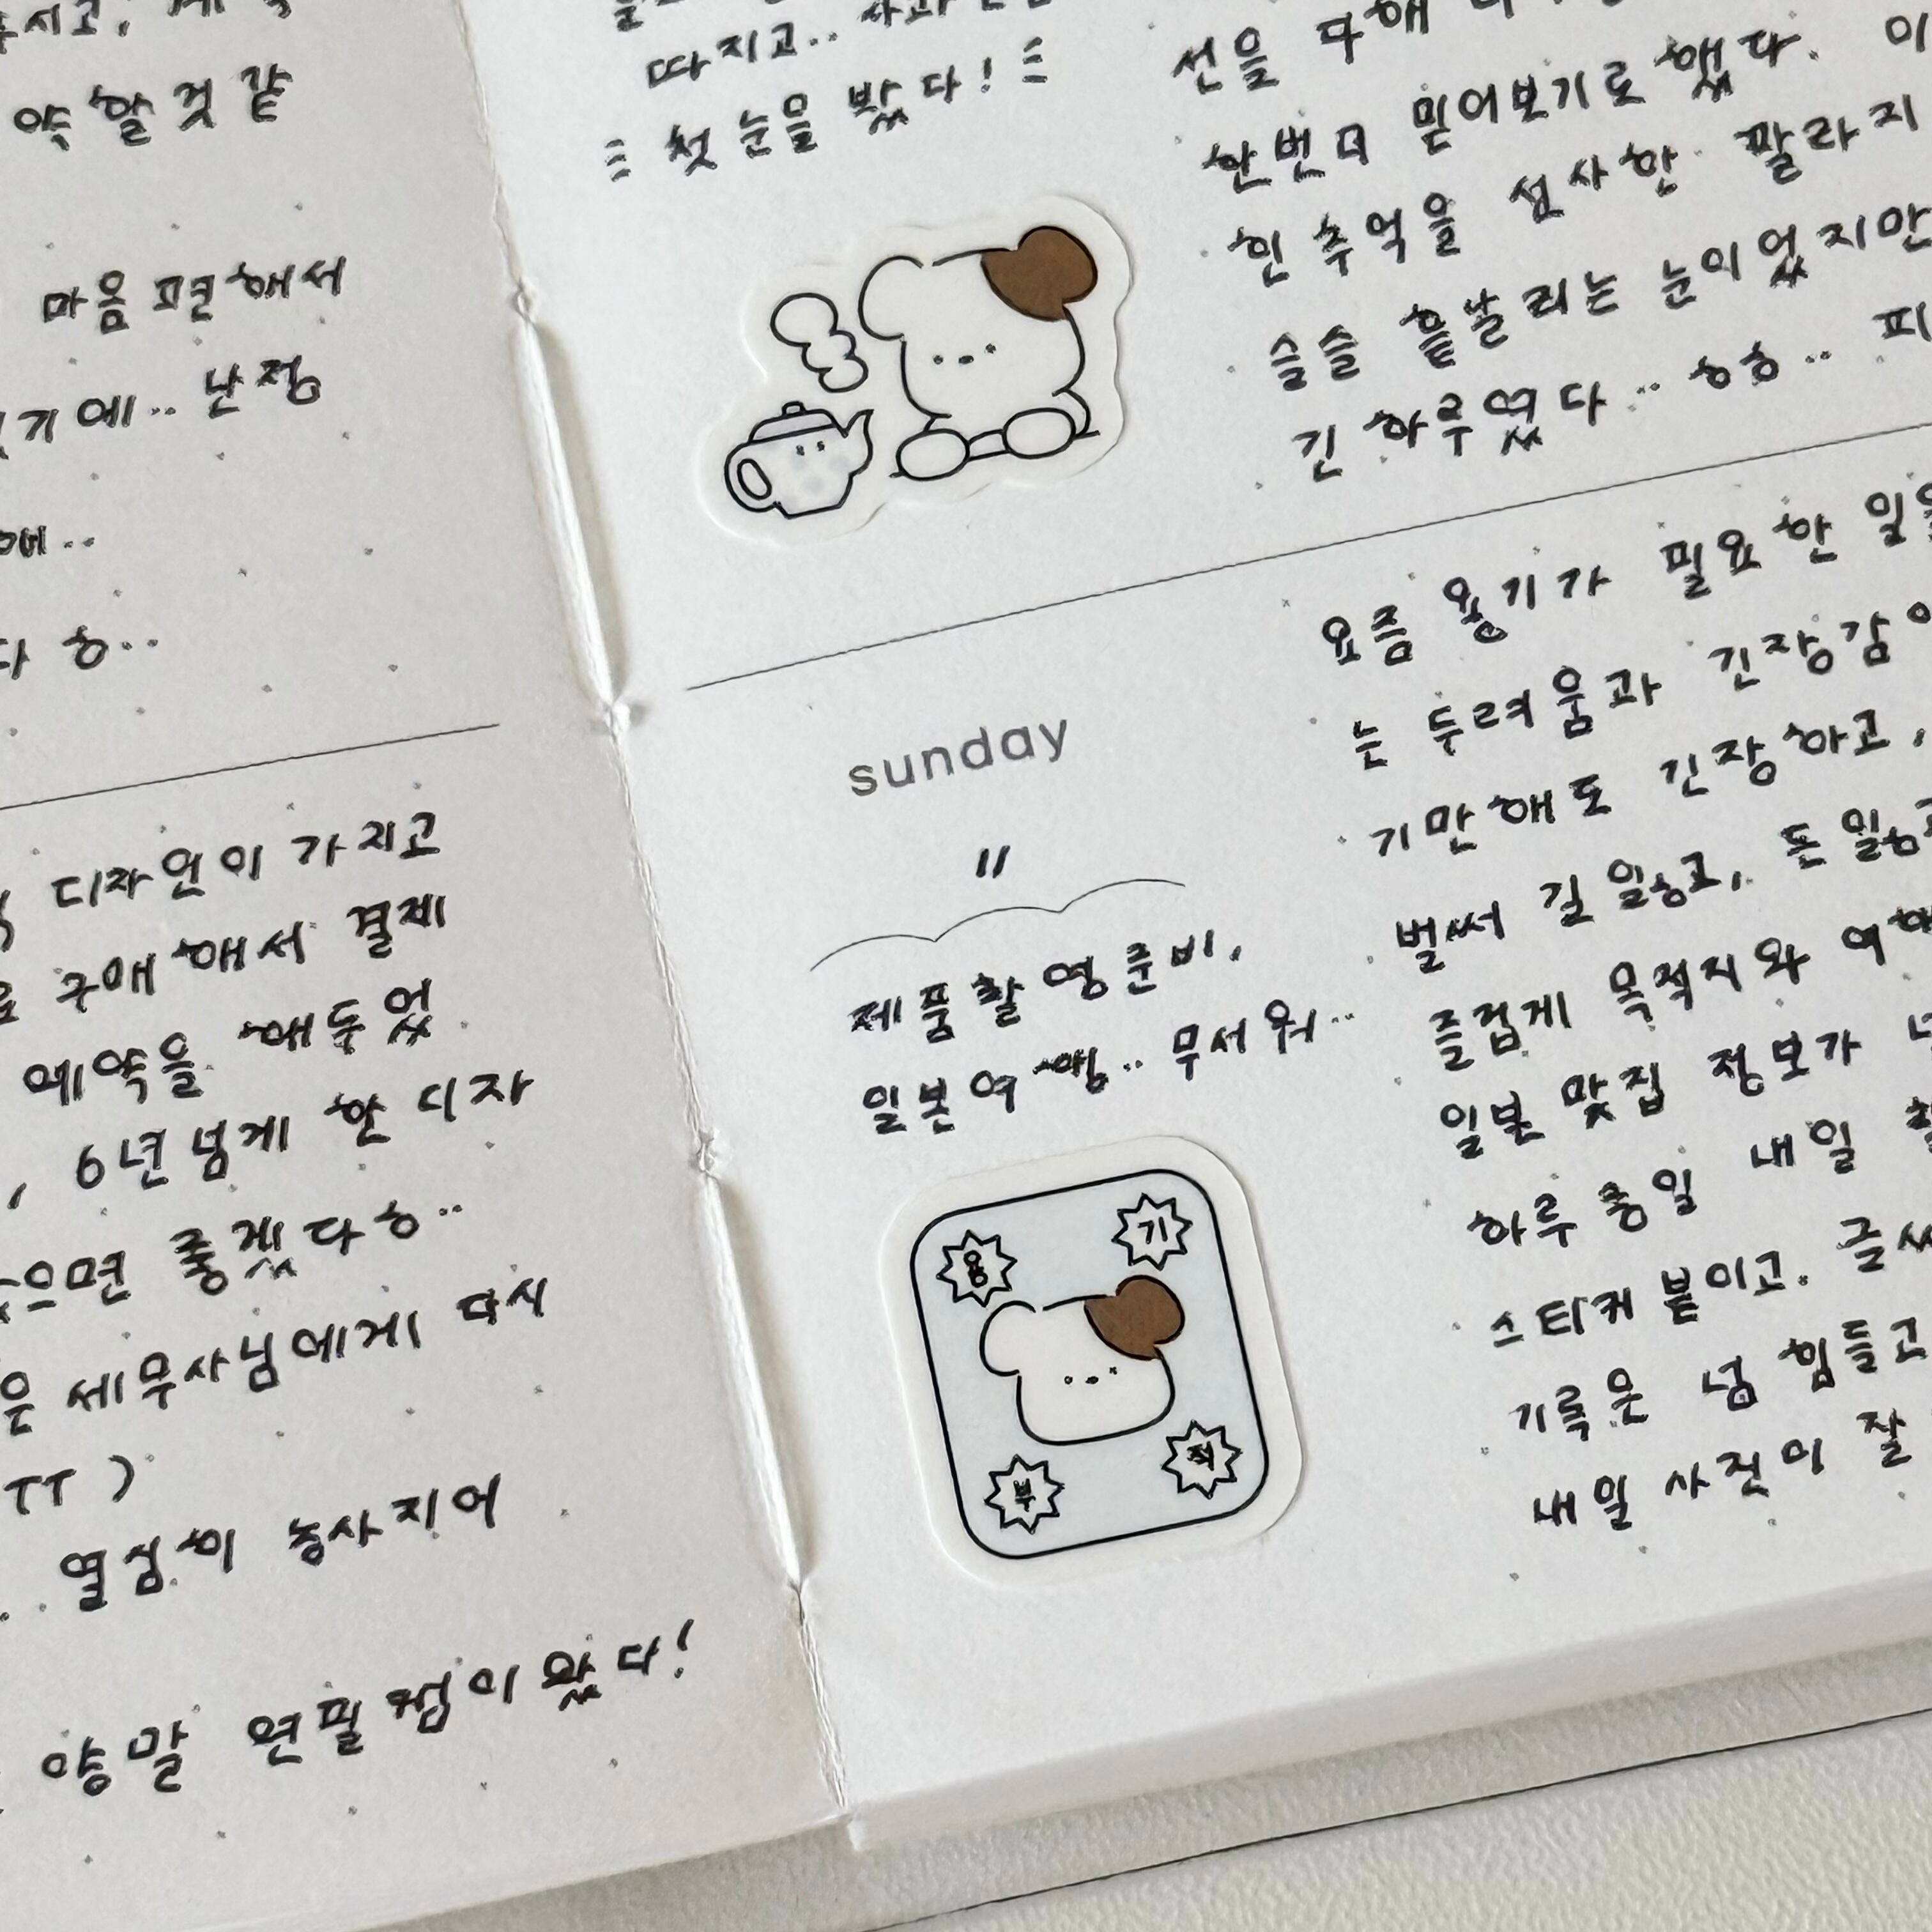 약할것 같
마음 편해서
기에.. 난정
해..
다 ㅎ..
디자인이 가지고
구매해서 결제
예약을 해두었
, 6년넘게 한 디자
으면 좋겠다ㅎ..
은 세무사님에게 다시
ㅠㅠ )
열심히 농사지어
양말 연필 컵이 왔다!
따지고..
첫 눈을 봤다!
sunday
제품촬영준비,
일본여행.. 무서워..
용
기
부
적
선을 다해
한번더 믿어보기로했다. 이
인 추억을 선사한 팔라지
슬슬 흩날리는 눈이었지만
긴 하루였다.. ㅎㅎ.. 피
요즘 용기가 필요한 일을
는 두려움과 긴장감
기만해도 긴장하고,
벌써 길 잃고, 돈 잃고
즐겁게 목적지와 여행
일본 맛집 정보가
하루종일 내일
스티커 붙이고, 글씨
기록은 넘 힘들고
내일 사진이 잘